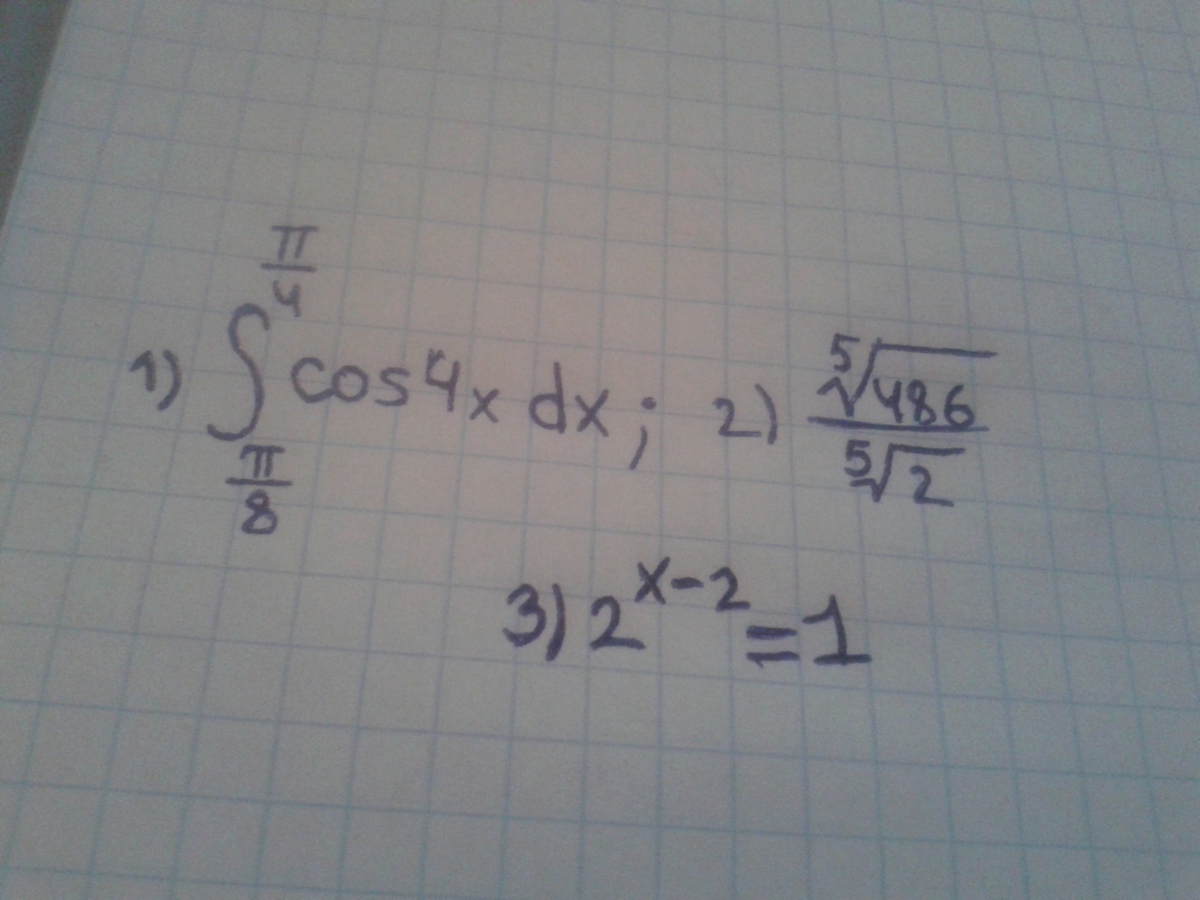 1) ∫_{π/8}^{π/4} cos4x dx; 2) \frac{\sqrt[5]{486}}{\sqrt[5]{2}}
3) 2^{x-2}=1